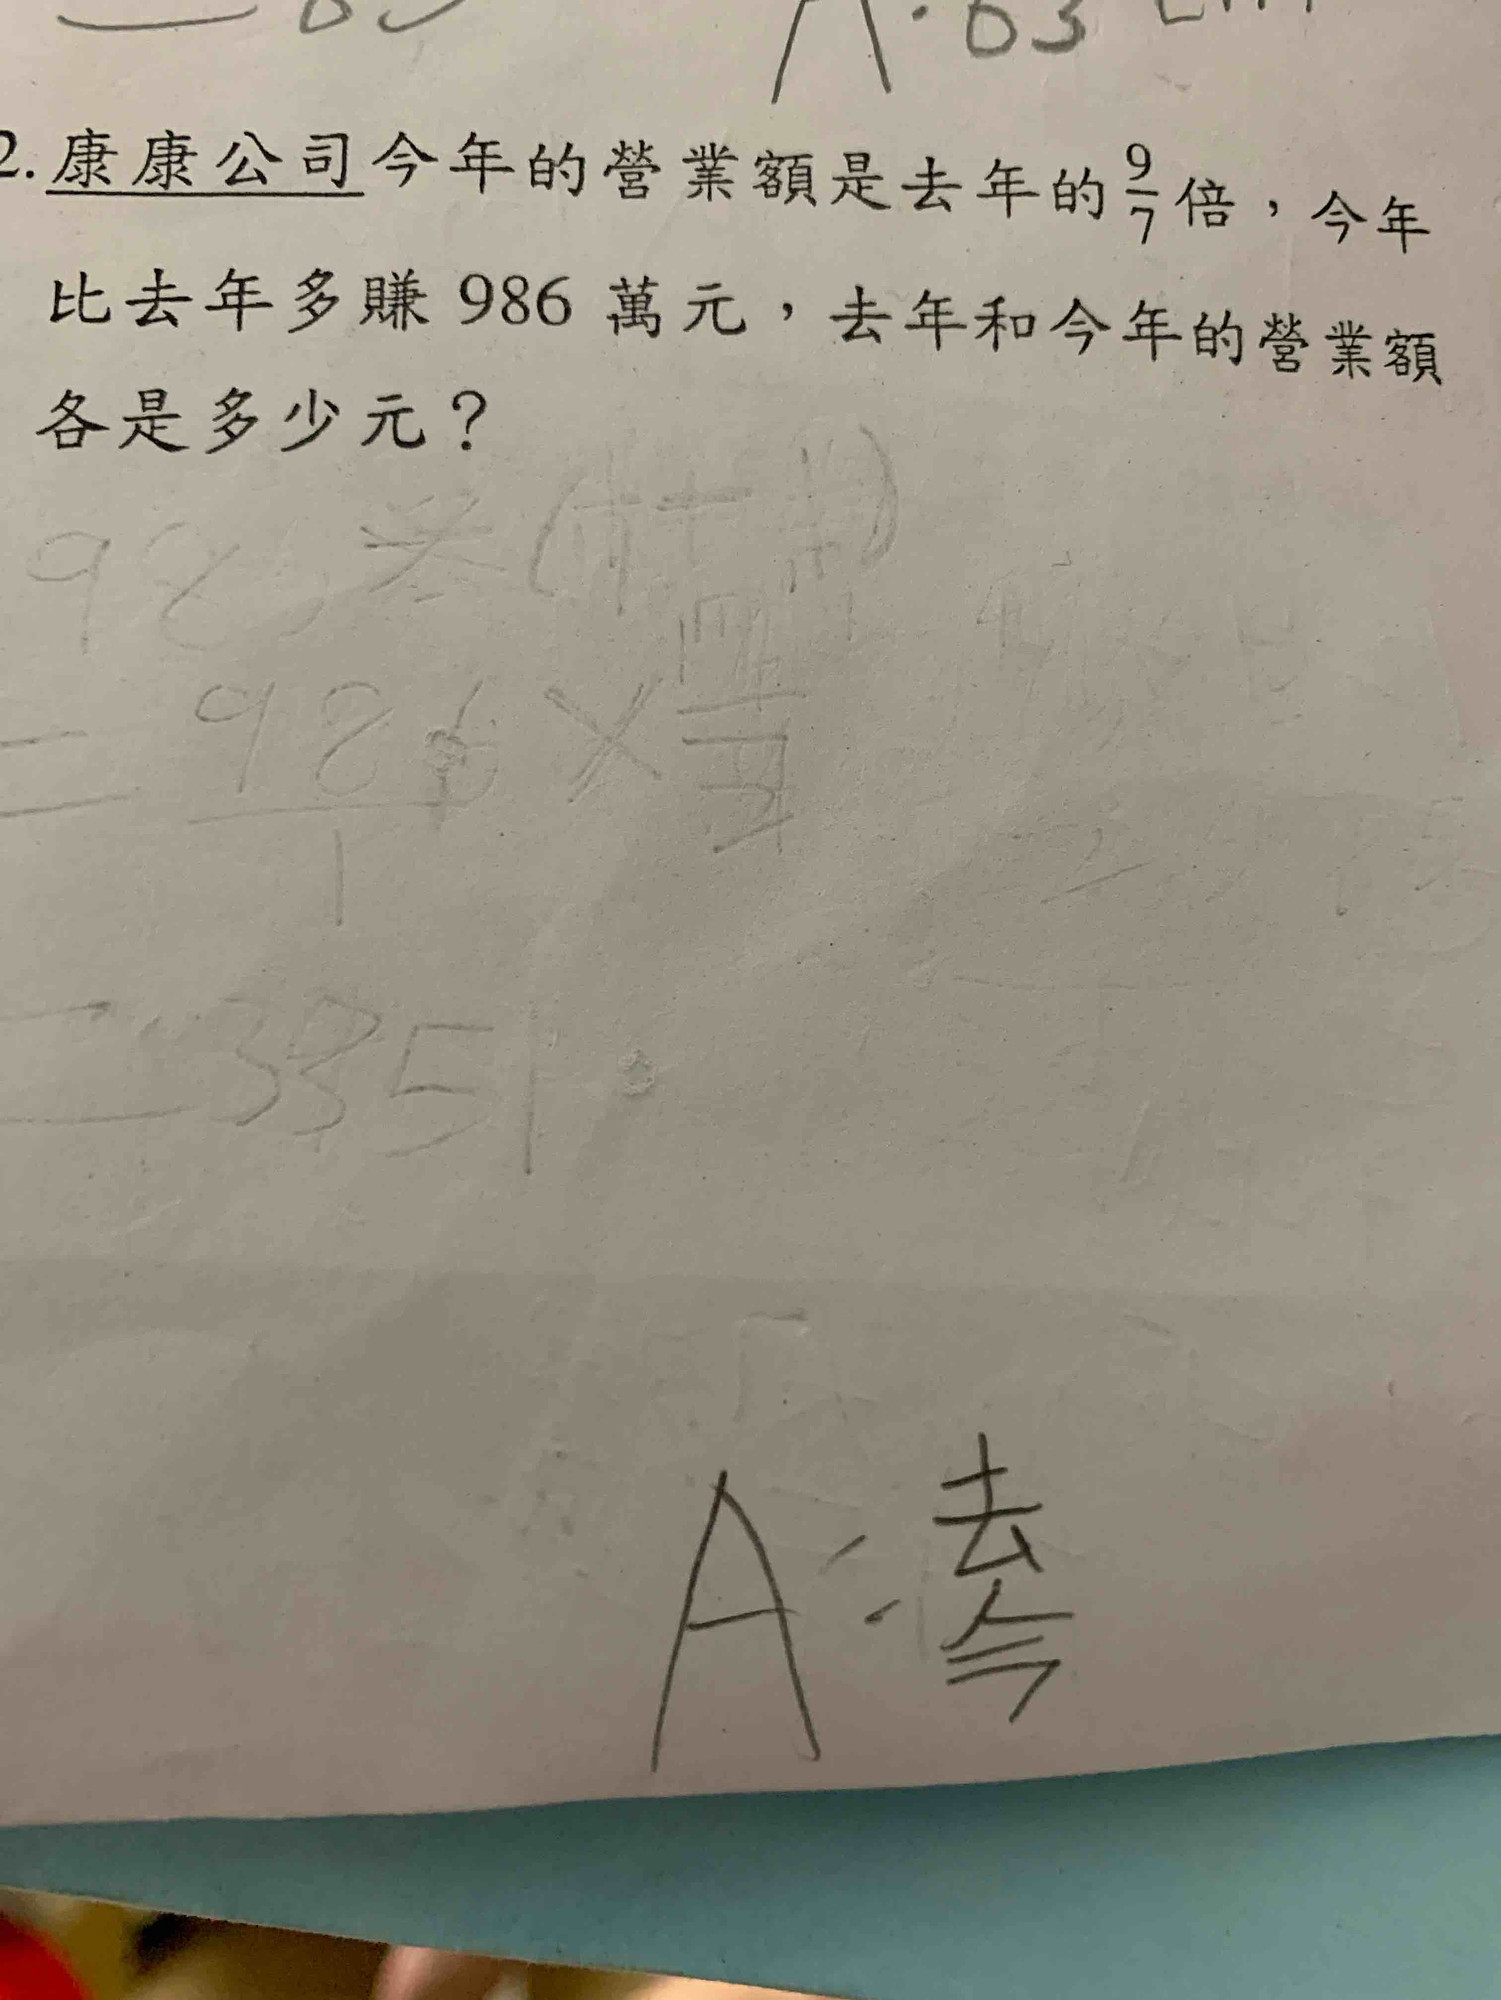 A：63 cm
2.康康公司今年的營業額是去年的9/7倍，今年
比去年多賺 986 萬元，去年和今年的營業額
各是多少元？
= 986/1 ×
= 3851
A：去
今